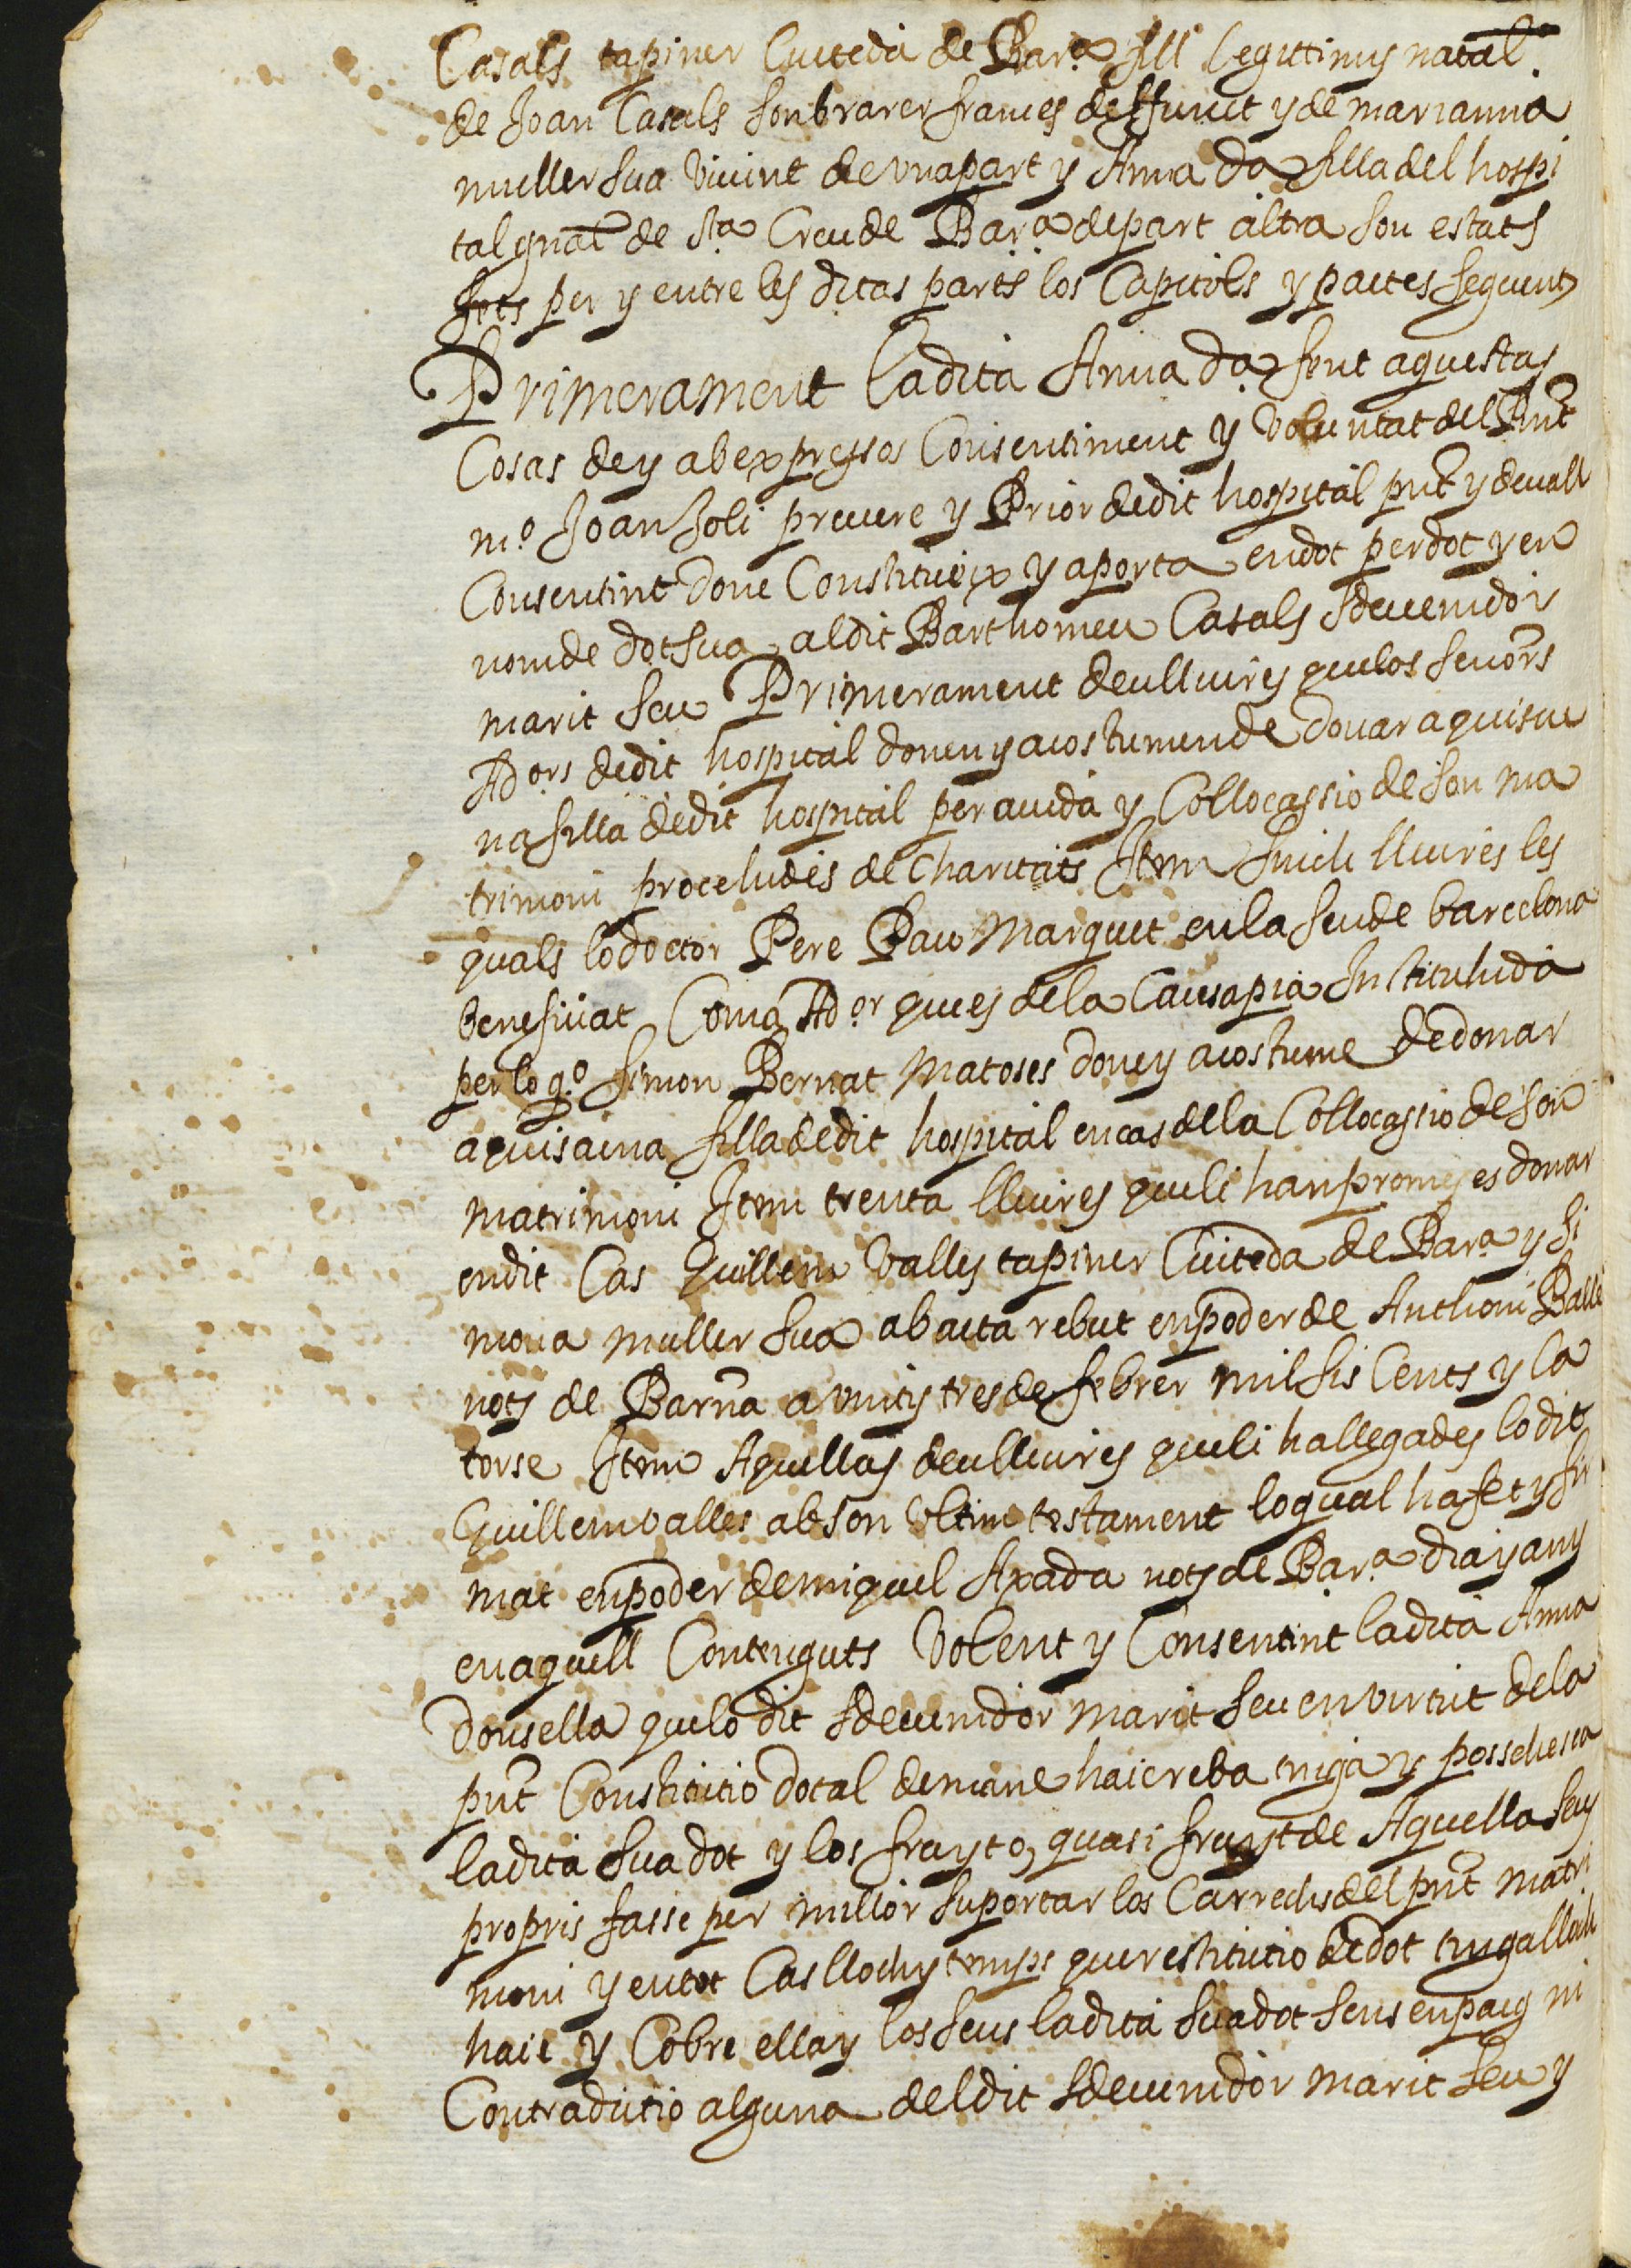 Casals tapiner Ciutedà de Bar.ª fill legittim y natal.
de Joan Casals sonbrarer frances deffunct y de marianna
muller sua vivint de vna part y Anna d.ª filla del hospi
tal gnal de sta Creu de Bar.ª de part altra son estats
fets per y entre les ditas parts los Capitols y pactes seguents
Primerament la dita Anna d.ª fent aquestas
Cosas de y ab expresso Consentiment y voluntat del Rnt
m.º Joan Soli prevere y Prior de dit hospital pnt y devall
Consentint done Constitueix y aporta en dot per dot y en
nom de dot sua al dit Barthomeu Casals sdevenidor
marit seu Primerament deu lluires que los senors
Ad.ors de dit hospital donen y acostumen de donar a quiscu
na filla de dit hospital per aiuda y Collocassio de son ma
trimoni procehides de Charitats Item sinch lluires les
quals lo doctor Pere Pau Marquet en la seu de barcelona
benefiiat Coma Ad.or que es de la Causa pia Instituhida
per lo q.º Simon Bernat Matoses done y acostume de donar
a quisauna filla de dit hospital en cas de lla Collocassio de son
matrimoni Item trenta lluires que li han promes es donar
en dit Cas Guillem Valles tapiner Ciuteda de Bar.ª y Si
mona muller sua ab acta rebut en poder de Anthoni Batlle
nots de Barna a vint y tres de febrer mil sis Cents y Ca
torse Item Aquellas deu lluires que li ha llegades lo dit
Guillem valles ab son vltim testament lo qual ha fet y fir
mat en poder de miquel Axada nots de Bar.ª dia y any
en aquell Contenguts Volent y Consentint la dita Anna
donsella que lo dit sdevenidor marit seu en virtut de la
pnt Constitutio dotal demane haie reba tinga y possehesca
la dita sua dot y los fruyts o quasi fruyt de Aquella seus
propris fasse per millor suportar los Carrechs del pnt matri
moni y en tot Cas lloch y temps que restitutio de dot tinga lloch
haie y Cobre ella y los seus la dita sua dot sens enpaig ni
Contradictio alguna del dit sdevenidor marit seu y